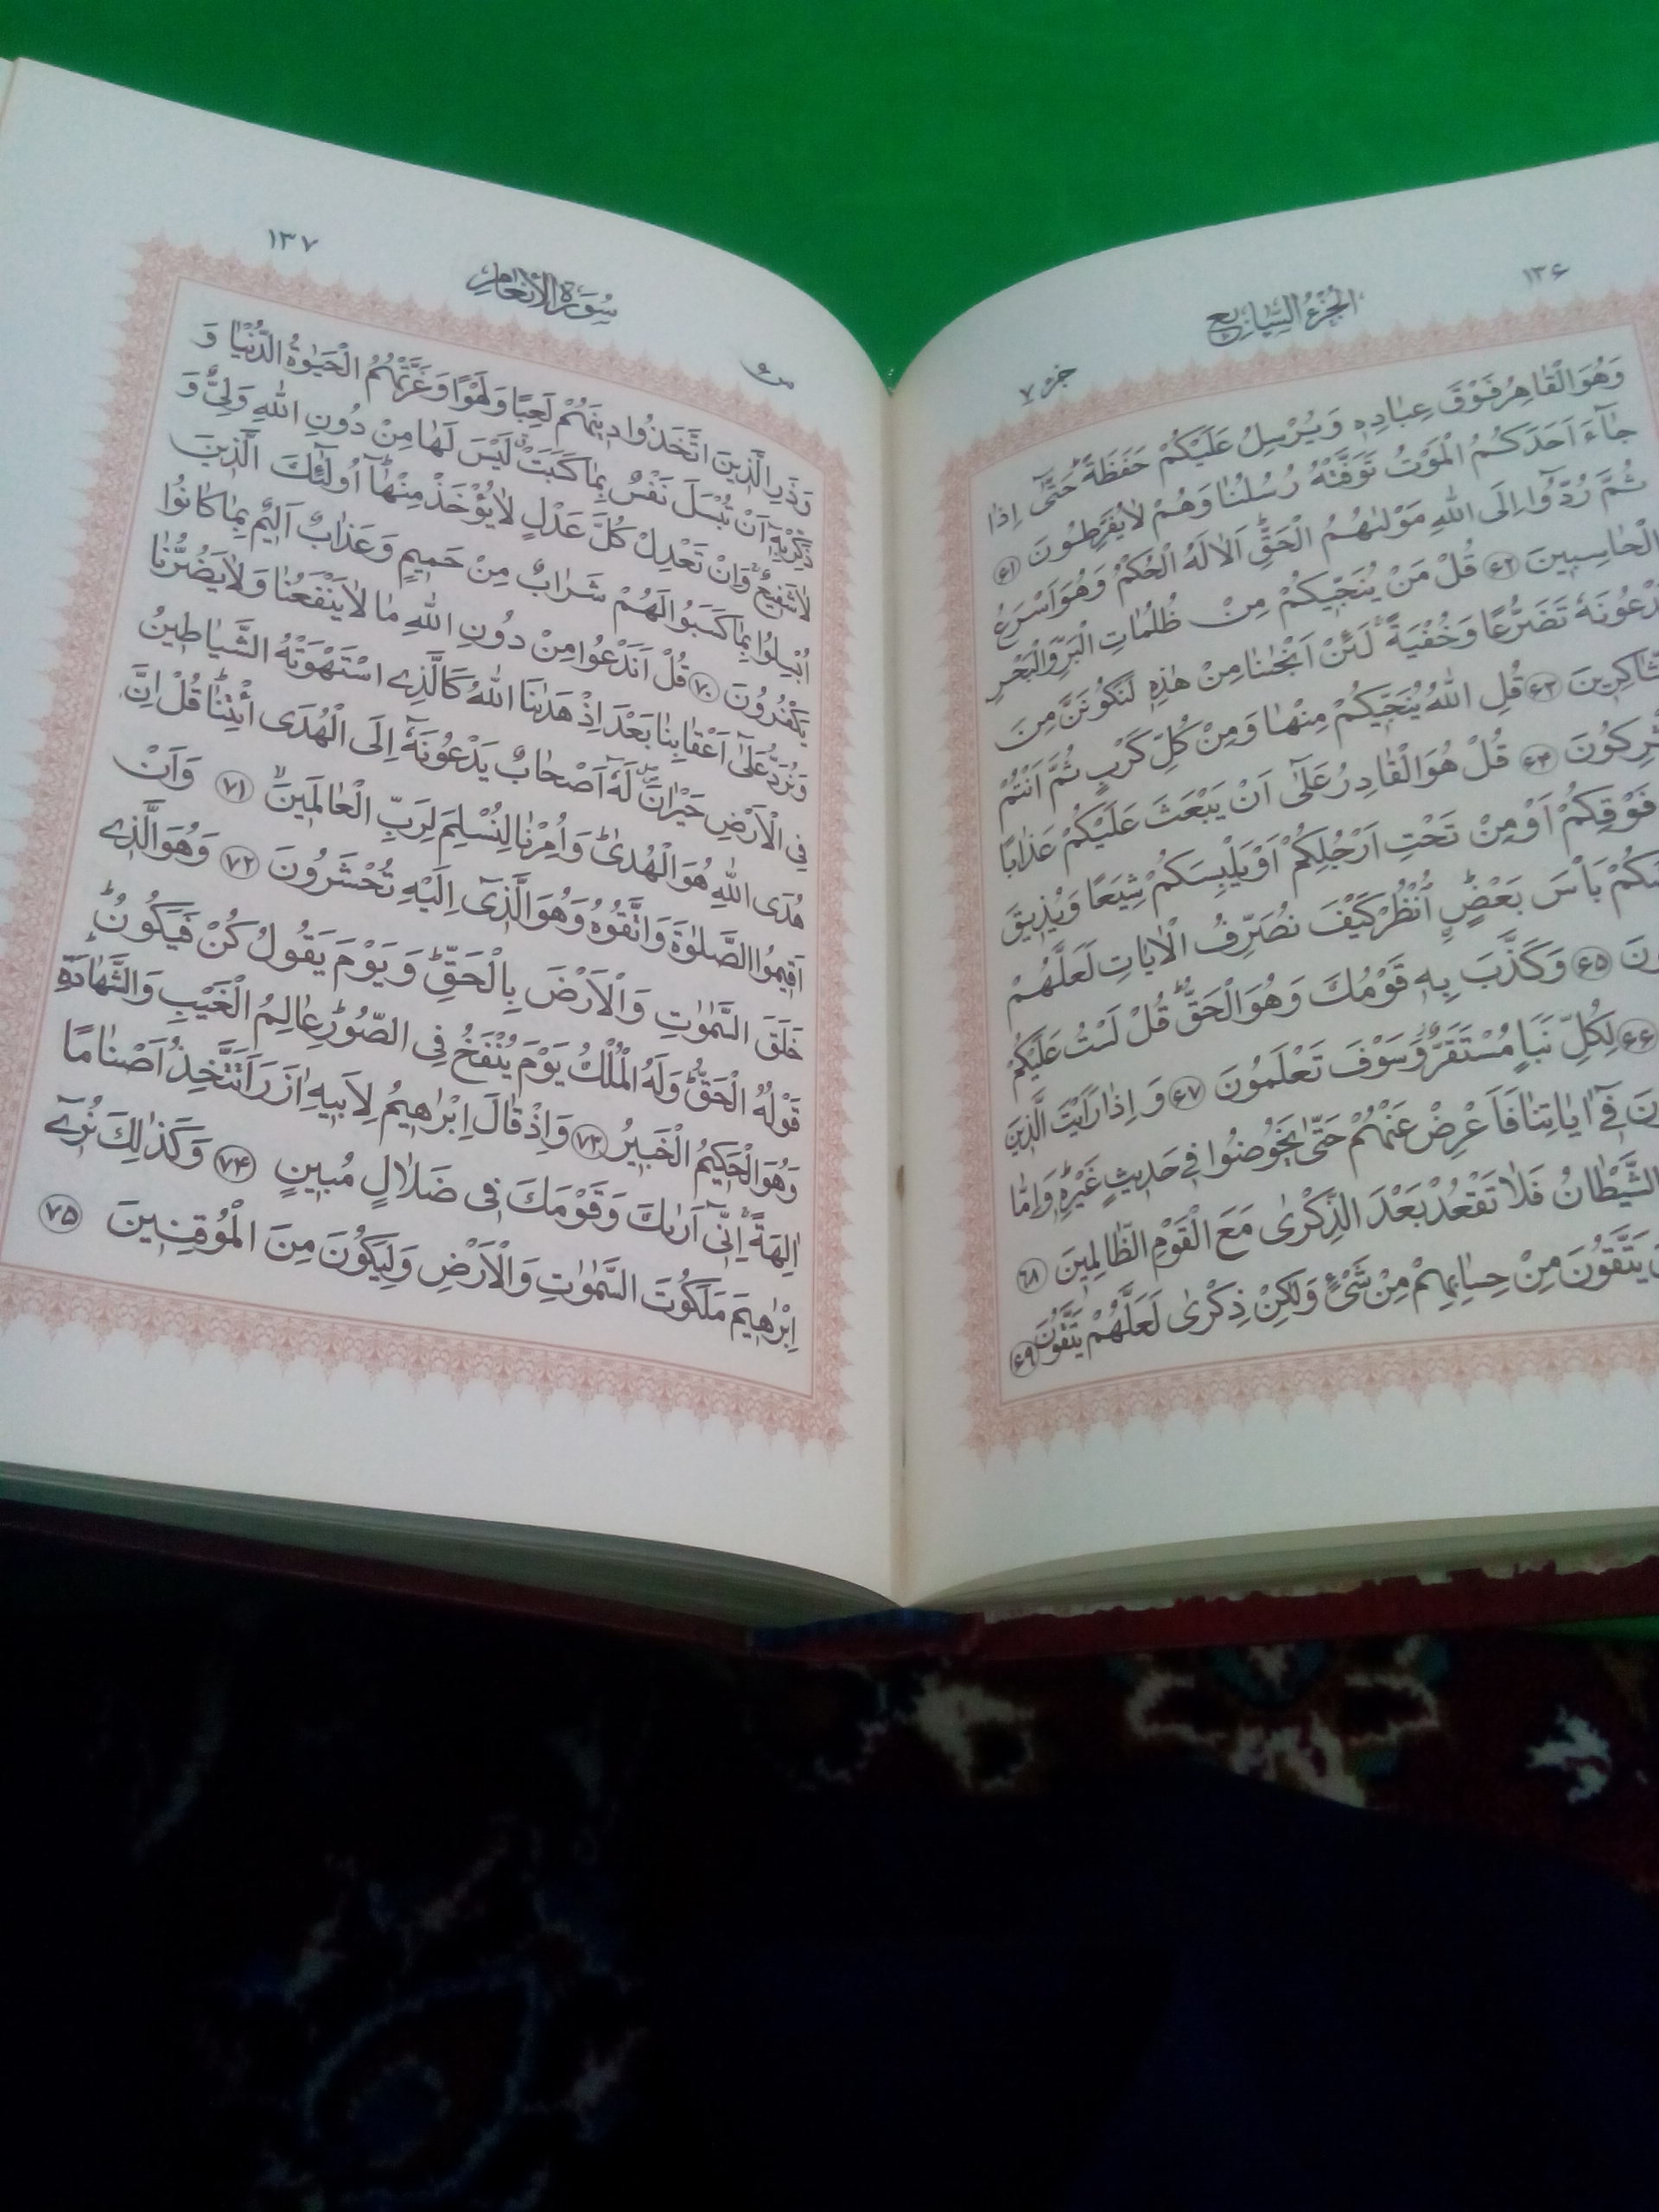 ١٣۶
الجزء السابع
جزء ٧
وَهُوَ الْقَاهِرُ فَوْقَ عِبَادِهِ وَيُرْسِلُ عَلَيْكُمْ حَفَظَةً حَتَّىٰ اِذَا
جَاءَ اَحَدَكُمُ الْمَوْتُ تَوَفَّتْهُ رُسُلُنَا وَهُمْ لَا يُفَرِّطُونَ ۶١
ثُمَّ رُدُّوا اِلَى اللهِ مَوْلٰىهُمُ الْحَقِّ اَلَا لَهُ الْحُكْمُ وَهُوَ اَسْرَعُ
الْحَاسِبِينَ ۶٢ قُلْ مَنْ يُنَجِّيكُمْ مِنْ ظُلُمَاتِ الْبَرِّ وَالْبَحْرِ
تَضَرُّعًا وَخُفْيَةً لَئِنْ اَنْجٰىنَا مِنْ هٰذِهِ لَنَكُونَنَّ مِنَ
۶٣ قُلِ اللهُ يُنَجِّيكُمْ مِنْهَا وَمِنْ كُلِّ كَرْبٍ ثُمَّ اَنْتُمْ
۶۴ قُلْ هُوَ الْقَادِرُ عَلٰى اَنْ يَبْعَثَ عَلَيْكُمْ عَذَابًا
فَوْقِكُمْ اَوْ مِنْ تَحْتِ اَرْجُلِكُمْ اَوْ يَلْبِسَكُمْ شِيَعًا وَيُذِيقَ
بَاْسَ بَعْضٍ اُنْظُرْ كَيْفَ نُصَرِّفُ الْاٰيَاتِ لَعَلَّهُمْ
۶۵ وَكَذَّبَ بِهِ قَوْمُكَ وَهُوَ الْحَقُّ قُلْ لَسْتُ عَلَيْكُمْ
۶۶ لِكُلِّ نَبَاٍ مُسْتَقَرٌّ وَسَوْفَ تَعْلَمُونَ ۶٧ وَاِذَا رَاَيْتَ الَّذِينَ
فِى اٰيَاتِنَا فَاَعْرِضْ عَنْهُمْ حَتّٰى يَخُوضُوا فِى حَدِيثٍ غَيْرِهِ وَاِمَّا
الشَّيْطَانُ فَلَا تَقْعُدْ بَعْدَ الذِّكْرٰى مَعَ الْقَوْمِ الظَّالِمِينَ ۶٨
يَتَّقُونَ مِنْ حِسَابِهِمْ مِنْ شَىْءٍ وَلٰكِنْ ذِكْرٰى لَعَلَّهُمْ يَتَّقُونَ ۶٩
١٣٧
سورة الانعام
وَذَرِ الَّذِينَ اتَّخَذُوا دِينَهُمْ لَعِبًا وَلَهْوًا وَغَرَّتْهُمُ الْحَيٰوةُ الدُّنْيَا وَ
ذَكِّرْ بِهِ اَنْ تُبْسَلَ نَفْسٌ بِمَا كَسَبَتْ لَيْسَ لَهَا مِنْ دُونِ اللهِ وَلِىٌّ وَ
لَا شَفِيعٌ وَاِنْ تَعْدِلْ كُلَّ عَدْلٍ لَا يُؤْخَذْ مِنْهَا اُولٰئِكَ الَّذِينَ
اُبْسِلُوا بِمَا كَسَبُوا لَهُمْ شَرَابٌ مِنْ حَمِيمٍ وَعَذَابٌ اَلِيمٌ بِمَا كَانُوا
يَكْفُرُونَ ٧٠ قُلْ اَنَدْعُوا مِنْ دُونِ اللهِ مَا لَا يَنْفَعُنَا وَلَا يَضُرُّنَا
وَنُرَدُّ عَلٰى اَعْقَابِنَا بَعْدَ اِذْ هَدٰىنَا اللهُ كَالَّذِى اسْتَهْوَتْهُ الشَّيَاطِينُ
فِى الْاَرْضِ حَيْرَانَ لَهُ اَصْحَابٌ يَدْعُونَهُ اِلَى الْهُدَى ائْتِنَا قُلْ اِنَّ
هُدَى اللهِ هُوَ الْهُدٰى وَاُمِرْنَا لِنُسْلِمَ لِرَبِّ الْعَالَمِينَ ٧١ وَاَنْ
اَقِيمُوا الصَّلٰوةَ وَاتَّقُوهُ وَهُوَ الَّذِى اِلَيْهِ تُحْشَرُونَ ٧٢ وَهُوَ الَّذِى
خَلَقَ السَّمٰوَاتِ وَالْاَرْضَ بِالْحَقِّ وَيَوْمَ يَقُولُ كُنْ فَيَكُونُ
قَوْلُهُ الْحَقُّ وَلَهُ الْمُلْكُ يَوْمَ يُنْفَخُ فِى الصُّورِ عَالِمُ الْغَيْبِ وَالشَّهَادَةِ
وَهُوَ الْحَكِيمُ الْخَبِيرُ ٧٣ وَاِذْ قَالَ اِبْرٰهِيمُ لِاَبِيهِ اٰزَرَ اَتَتَّخِذُ اَصْنَامًا
اٰلِهَةً اِنِّى اَرٰىكَ وَقَوْمَكَ فِى ضَلَالٍ مُبِينٍ ٧۴ وَكَذٰلِكَ نُرِى
اِبْرٰهِيمَ مَلَكُوتَ السَّمٰوَاتِ وَالْاَرْضِ وَلِيَكُونَ مِنَ الْمُوقِنِينَ ٧۵